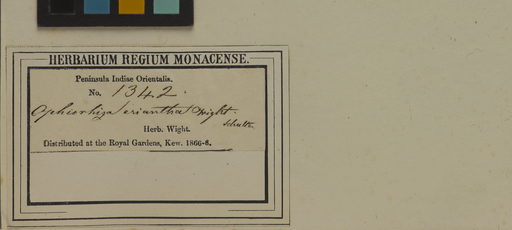 HERBARIUM REGIUM MONACENSE.
Peninsula Indiae Orientalis.
No. 1342.
Ophiorhiza eriantha Wight.
Herb. Wight.
Distributed at the Royal Gardens, Kew. 1866-6.